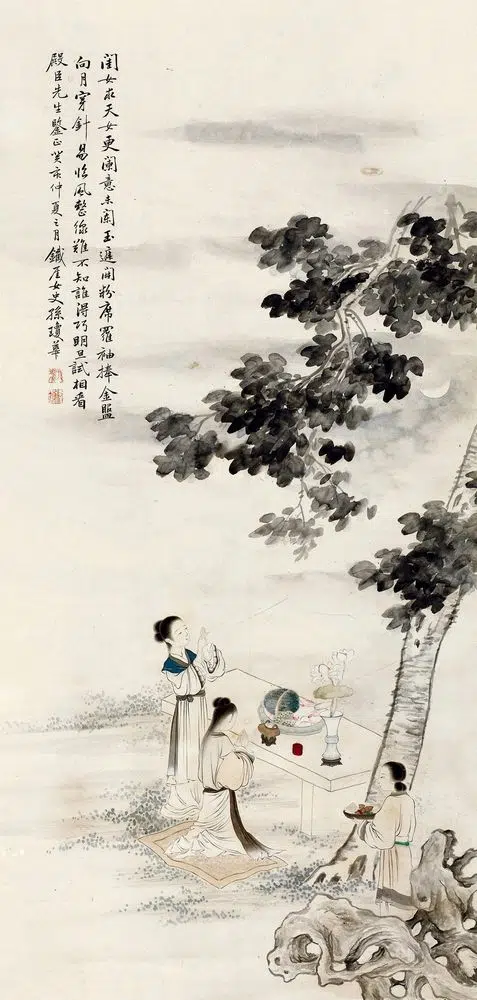 閨女求天女更闌意未闌玉庭開粉席羅袖捧金盤
向月穿針易臨風整線難不知誰得巧明旦試相看
殿臣先生鑒正癸亥仲夏之月鐵厓女史孫瓊華